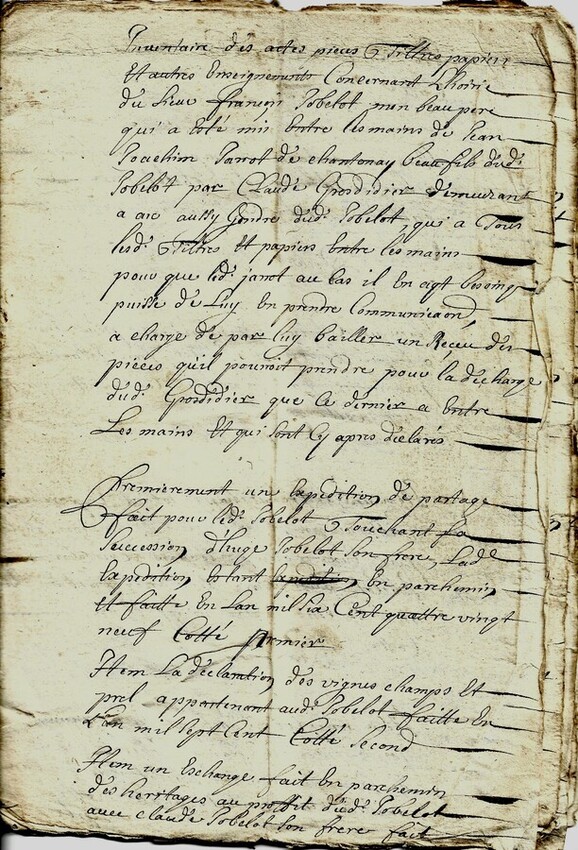 Inventaire des actes pieces Tiltres papiers
Et autres Enseignements Concernant L'hoirie
du sieur françois Jobelot mon beau pere
qui a Esté mis Entre les mains de Jean
Joachim Parrot de chantonay beau fils dud.
Jobelot par Claude Grosdidier demeurant
a arc aussy Gendre dud. Jobelot, qui a Tous
lesd. Tiltres Et papiers Entre les mains
pour que led. au cas il En ayt besoing
puisse de Luy En prendre Communicaon
a charge de par luy bailler un Reçeu des
pieces qu'il pourroit prendre pour la décharge
dud. Grosdidier que Ce dernier a Entre
Les mains Et qui sont Cy apres déclarés
Premierement un Expedition de partage
fait pour led. Jobelot Touchant sa
succession Jobelot son frere, Lade
Expedition Estant En parchemin
Et faitte En Lan mil six Cent quattre vingt
neuf Cotté premier
Item La déclaration des vignes champs Et
prel appartenant aud. Jobelot faitte En
L'an mil sept Cent Cotté second
Item un Eschange fait En parchemin
des heritages au proffit dud. Jobelot
avec claude Jobelot son frere fait